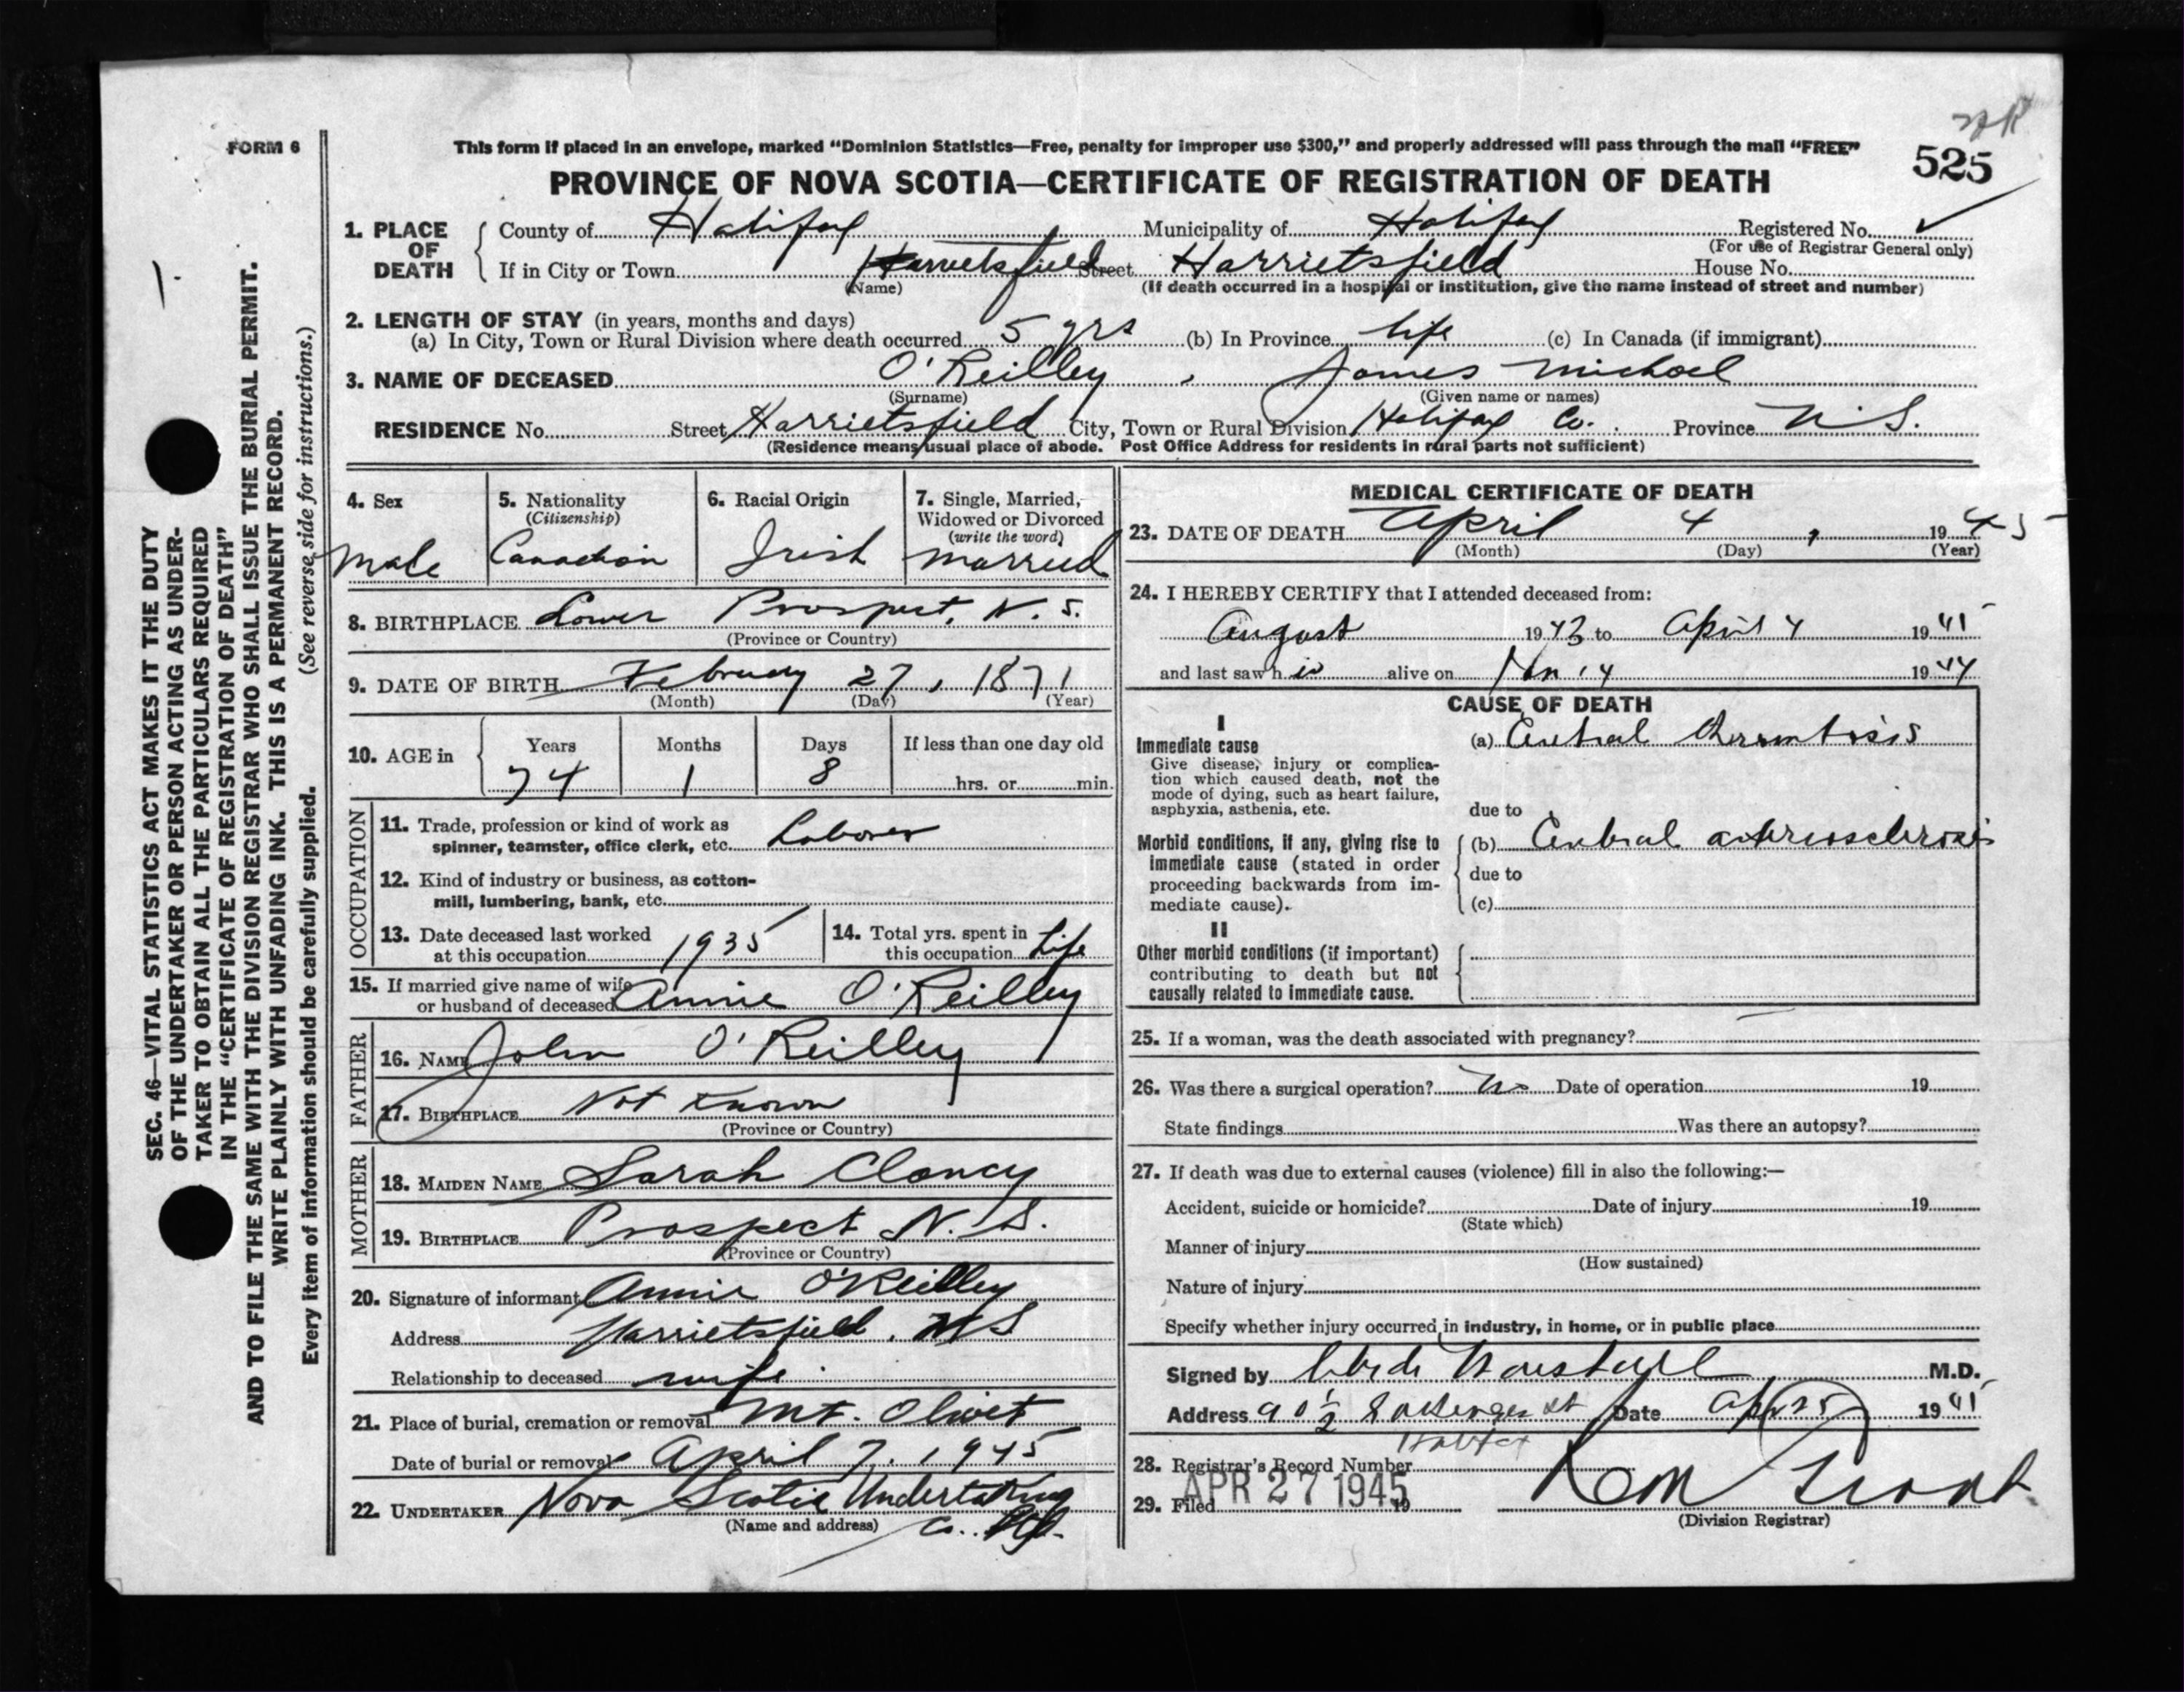 FORM 6
This form if placed in an envelope, marked "Dominion Statistics—Free, penalty for improper use $300," and properly addressed will pass through the mail "FREE"
525
PROVINCE OF NOVA SCOTIA—CERTIFICATE OF REGISTRATION OF DEATH
1. PLACE OF DEATH
County of Halifax Municipality of Halifax Registered No.
(For use of Registrar General only)
If in City or Town Harrietsfield Street Harrietsfield House No.
(Name) (If death occurred in a hospital or institution, give the name instead of street and number)
2. LENGTH OF STAY (in years, months and days)
(a) In City, Town or Rural Division where death occurred 5 yrs (b) In Province life (c) In Canada (if immigrant)
3. NAME OF DECEASED O'Reilley, James Michael
(Surname) (Given name or names)
RESIDENCE No. Street Harrietsfield City, Town or Rural Division Halifax Co. Province N.S.
(Residence means usual place of abode. Post Office Address for residents in rural parts not sufficient)
4. Sex
Male
5. Nationality
(Citizenship)
Canadian
6. Racial Origin
Irish
7. Single, Married,
Widowed or Divorced
(write the word)
married
8. BIRTHPLACE Lower Prospect, N.S.
(Province or Country)
9. DATE OF BIRTH February 27, 1871
(Month) (Day) (Year)
10. AGE in Years Months Days If less than one day old
74 1 8 hrs. or min.
OCCUPATION
11. Trade, profession or kind of work as
spinner, teamster, office clerk, etc. Laborer
12. Kind of industry or business, as cotton-
mill, lumbering, bank, etc.
13. Date deceased last worked
at this occupation 1935
14. Total yrs. spent in
this occupation Life
15. If married give name of wife
or husband of deceased Annie O'Reilley
FATHER
16. NAME John O'Reilley
17. BIRTHPLACE Not Known
(Province or Country)
MOTHER
18. MAIDEN NAME Sarah Clancy
19. BIRTHPLACE Prospect N.S.
(Province or Country)
20. Signature of informant Annie O'Reilley
Address Harrietsfield. N S
Relationship to deceased wife
21. Place of burial, cremation or removal Mt. Olivet
Date of burial or removal April 7, 1945
22. UNDERTAKER Nova Scotia Undertaking
(Name and address) Co.
MEDICAL CERTIFICATE OF DEATH
23. DATE OF DEATH April 4, 1945
(Month) (Day) (Year)
24. I HEREBY CERTIFY that I attended deceased from:
August 1943 to April 4 1945
and last saw h alive on 14 1944
CAUSE OF DEATH
I
Immediate cause
Give disease, injury or complica-
tion which caused death, not the
mode of dying, such as heart failure,
asphyxia, asthenia, etc.
(a) Cerebral thrombosis
due to
Morbid conditions, if any, giving rise to
immediate cause (stated in order
proceeding backwards from im-
mediate cause).
(b) Cerebral arteriosclerosis
due to
(c)
II
Other morbid conditions (if important)
contributing to death but not
causally related to immediate cause.
25. If a woman, was the death associated with pregnancy? —
26. Was there a surgical operation? No Date of operation 19
State findings Was there an autopsy?
27. If death was due to external causes (violence) fill in also the following:—
Accident, suicide or homicide? Date of injury 19
(State which)
Manner of injury
(How sustained)
Nature of injury
Specify whether injury occurred in industry, in home, or in public place
Signed by M.D.
Address 90½ St Date Apr 25 1945
Halifax
28. Registrar's Record Number
29. Filed APR 27 1945 19
(Division Registrar)
SEC. 46—VITAL STATISTICS ACT MAKES IT THE DUTY
OF THE UNDERTAKER OR PERSON ACTING AS UNDER-
TAKER TO OBTAIN ALL THE PARTICULARS REQUIRED
IN THE "CERTIFICATE OF REGISTRATION OF DEATH"
AND TO FILE THE SAME WITH THE DIVISION REGISTRAR WHO SHALL ISSUE THE BURIAL PERMIT.
WRITE PLAINLY WITH UNFADING INK. THIS IS A PERMANENT RECORD.
Every item of information should be carefully supplied. (See reverse side for instructions.)